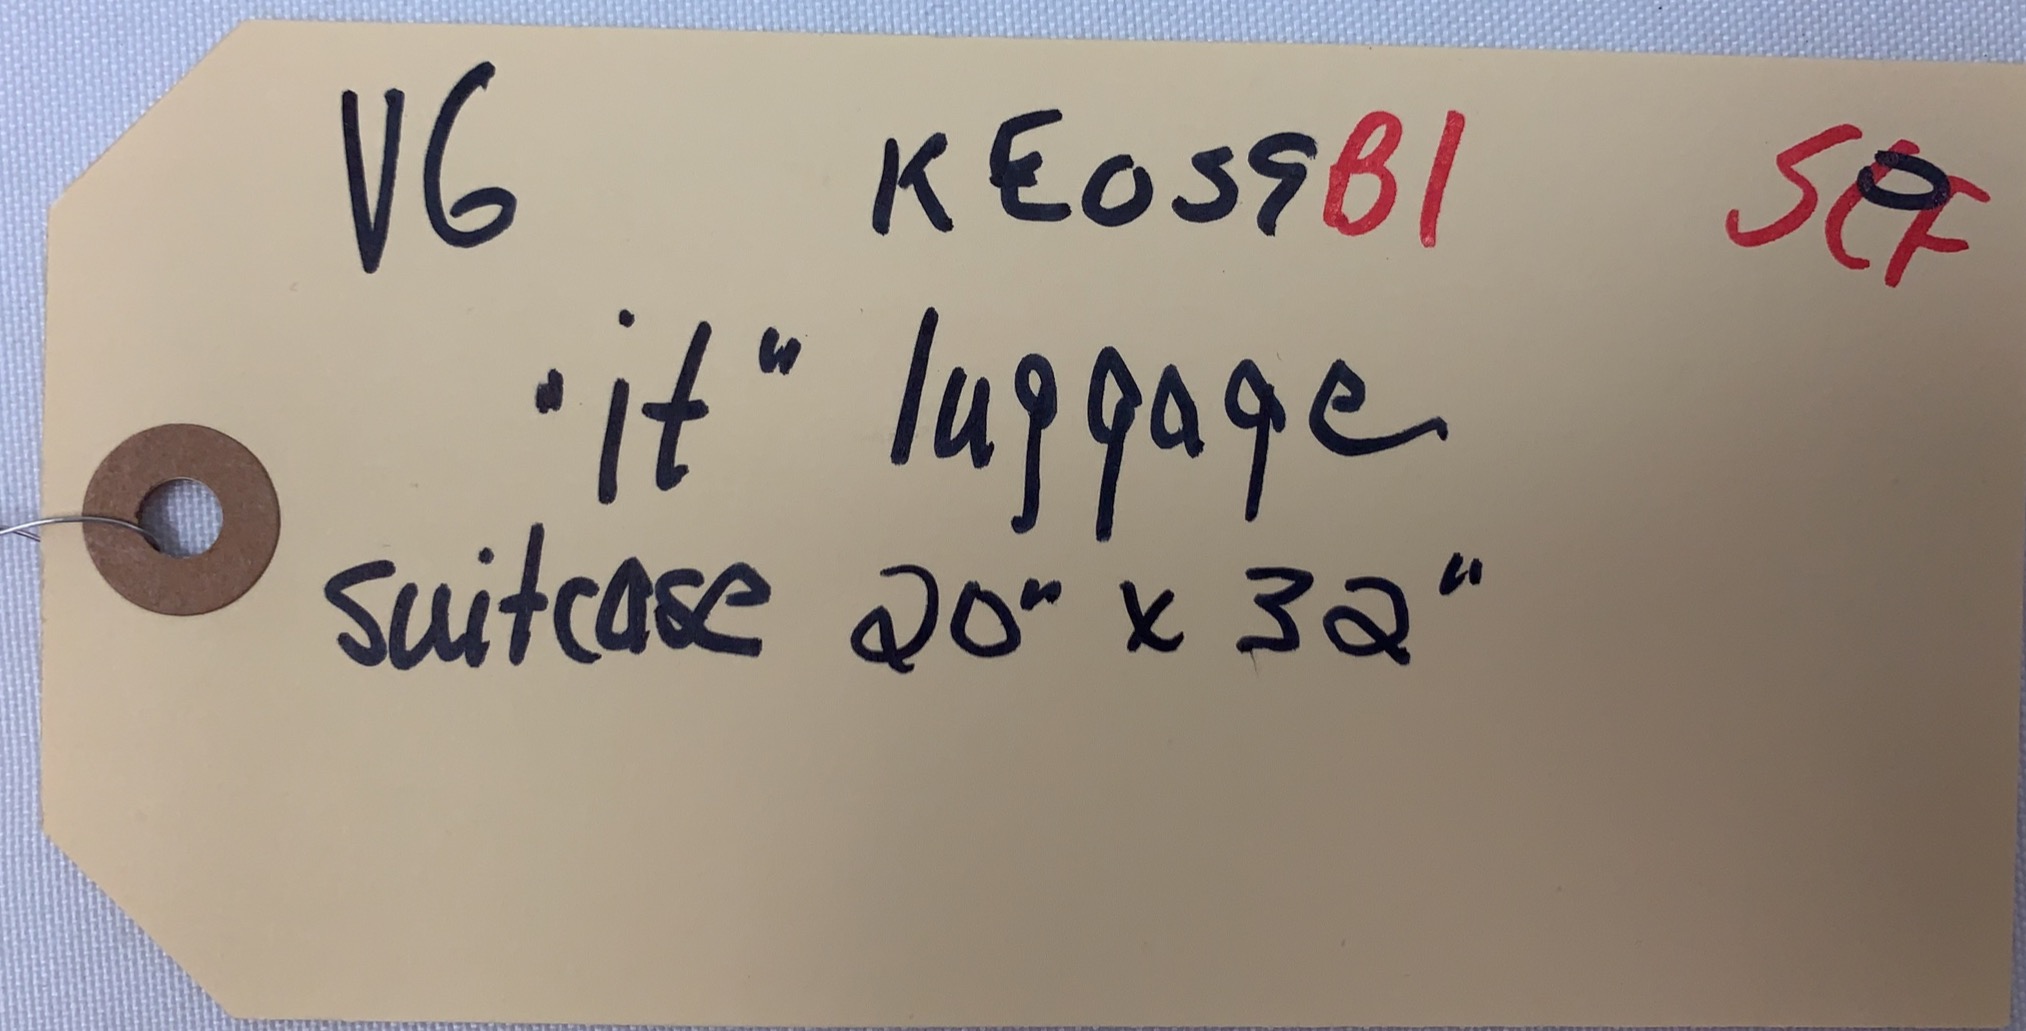 V6 KE059B1
"it" luggage
suitcase 20" x 32"